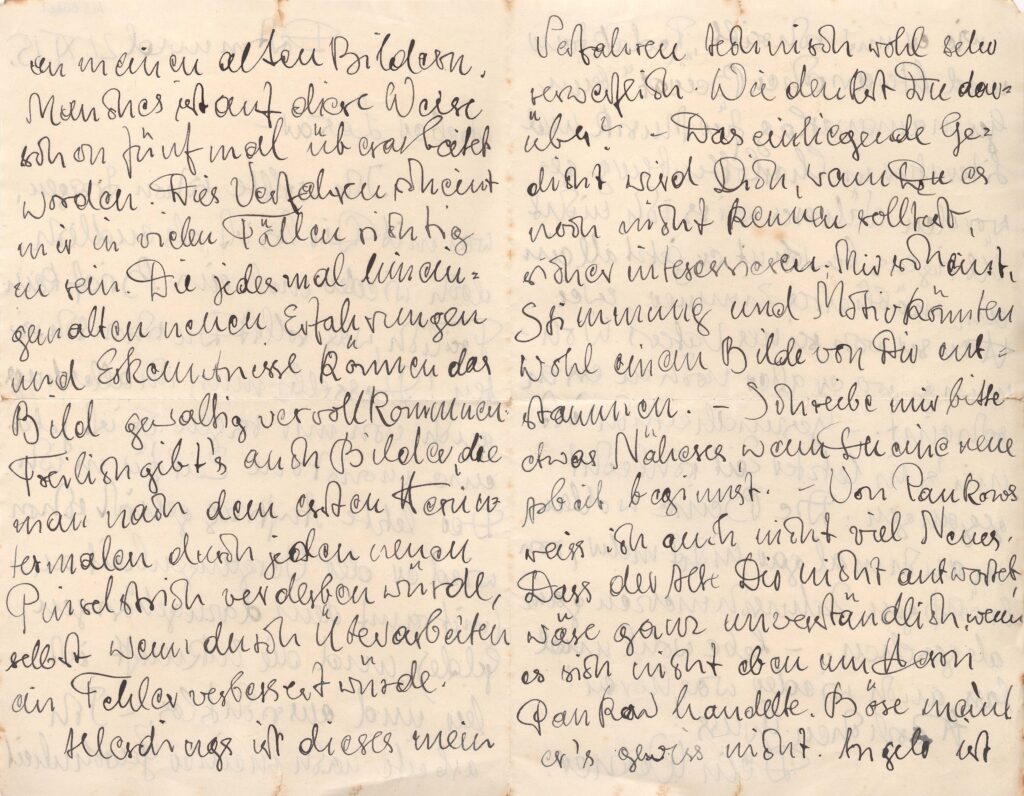 an meinen alten Bildern.
Manches ist auf diese Weise
schon fünfmal überarbeitet
worden. Dies Verfahren scheint
mir in vielen Fällen richtig
zu sein. Die jedesmal hinein=
gemalten neuen Erfahrungen
und Erkenntnisse können das
Bild gewaltig vervollkommnen.
Freilich gibt's auch Bilder, die
man nach dem ersten Herun=
termalen durch jeden neuen
Pinselstrich verderben würde,
selbst wenn durch Überarbeiten
ein Fehler verbessert würde.
Allerdings ist dieses mein
Verfahren technisch wohl sehr
verwerflich. Wie denkst Du dar=
über? – Das einliegende Ge=
dicht wird Dich, wenn Du es
noch nicht kennen solltest,
sicher interessieren. Mir scheint,
Stimmung und Motiv könnten
wohl einem Bilde von Dir ent=
stammen. – Schreibe mir bitte
etwas Näheres wenn Du eine neue
Arbeit beginnst. – Von Pankows
weiss ich auch nicht viel Neues.
Dass der Alte Dir nicht antwortet,
wäre ganz unverständlich, wenn
es sich nicht eben um Herrn
Pankow handelte. Böse meint
er's gewiss nicht. Angelo ist